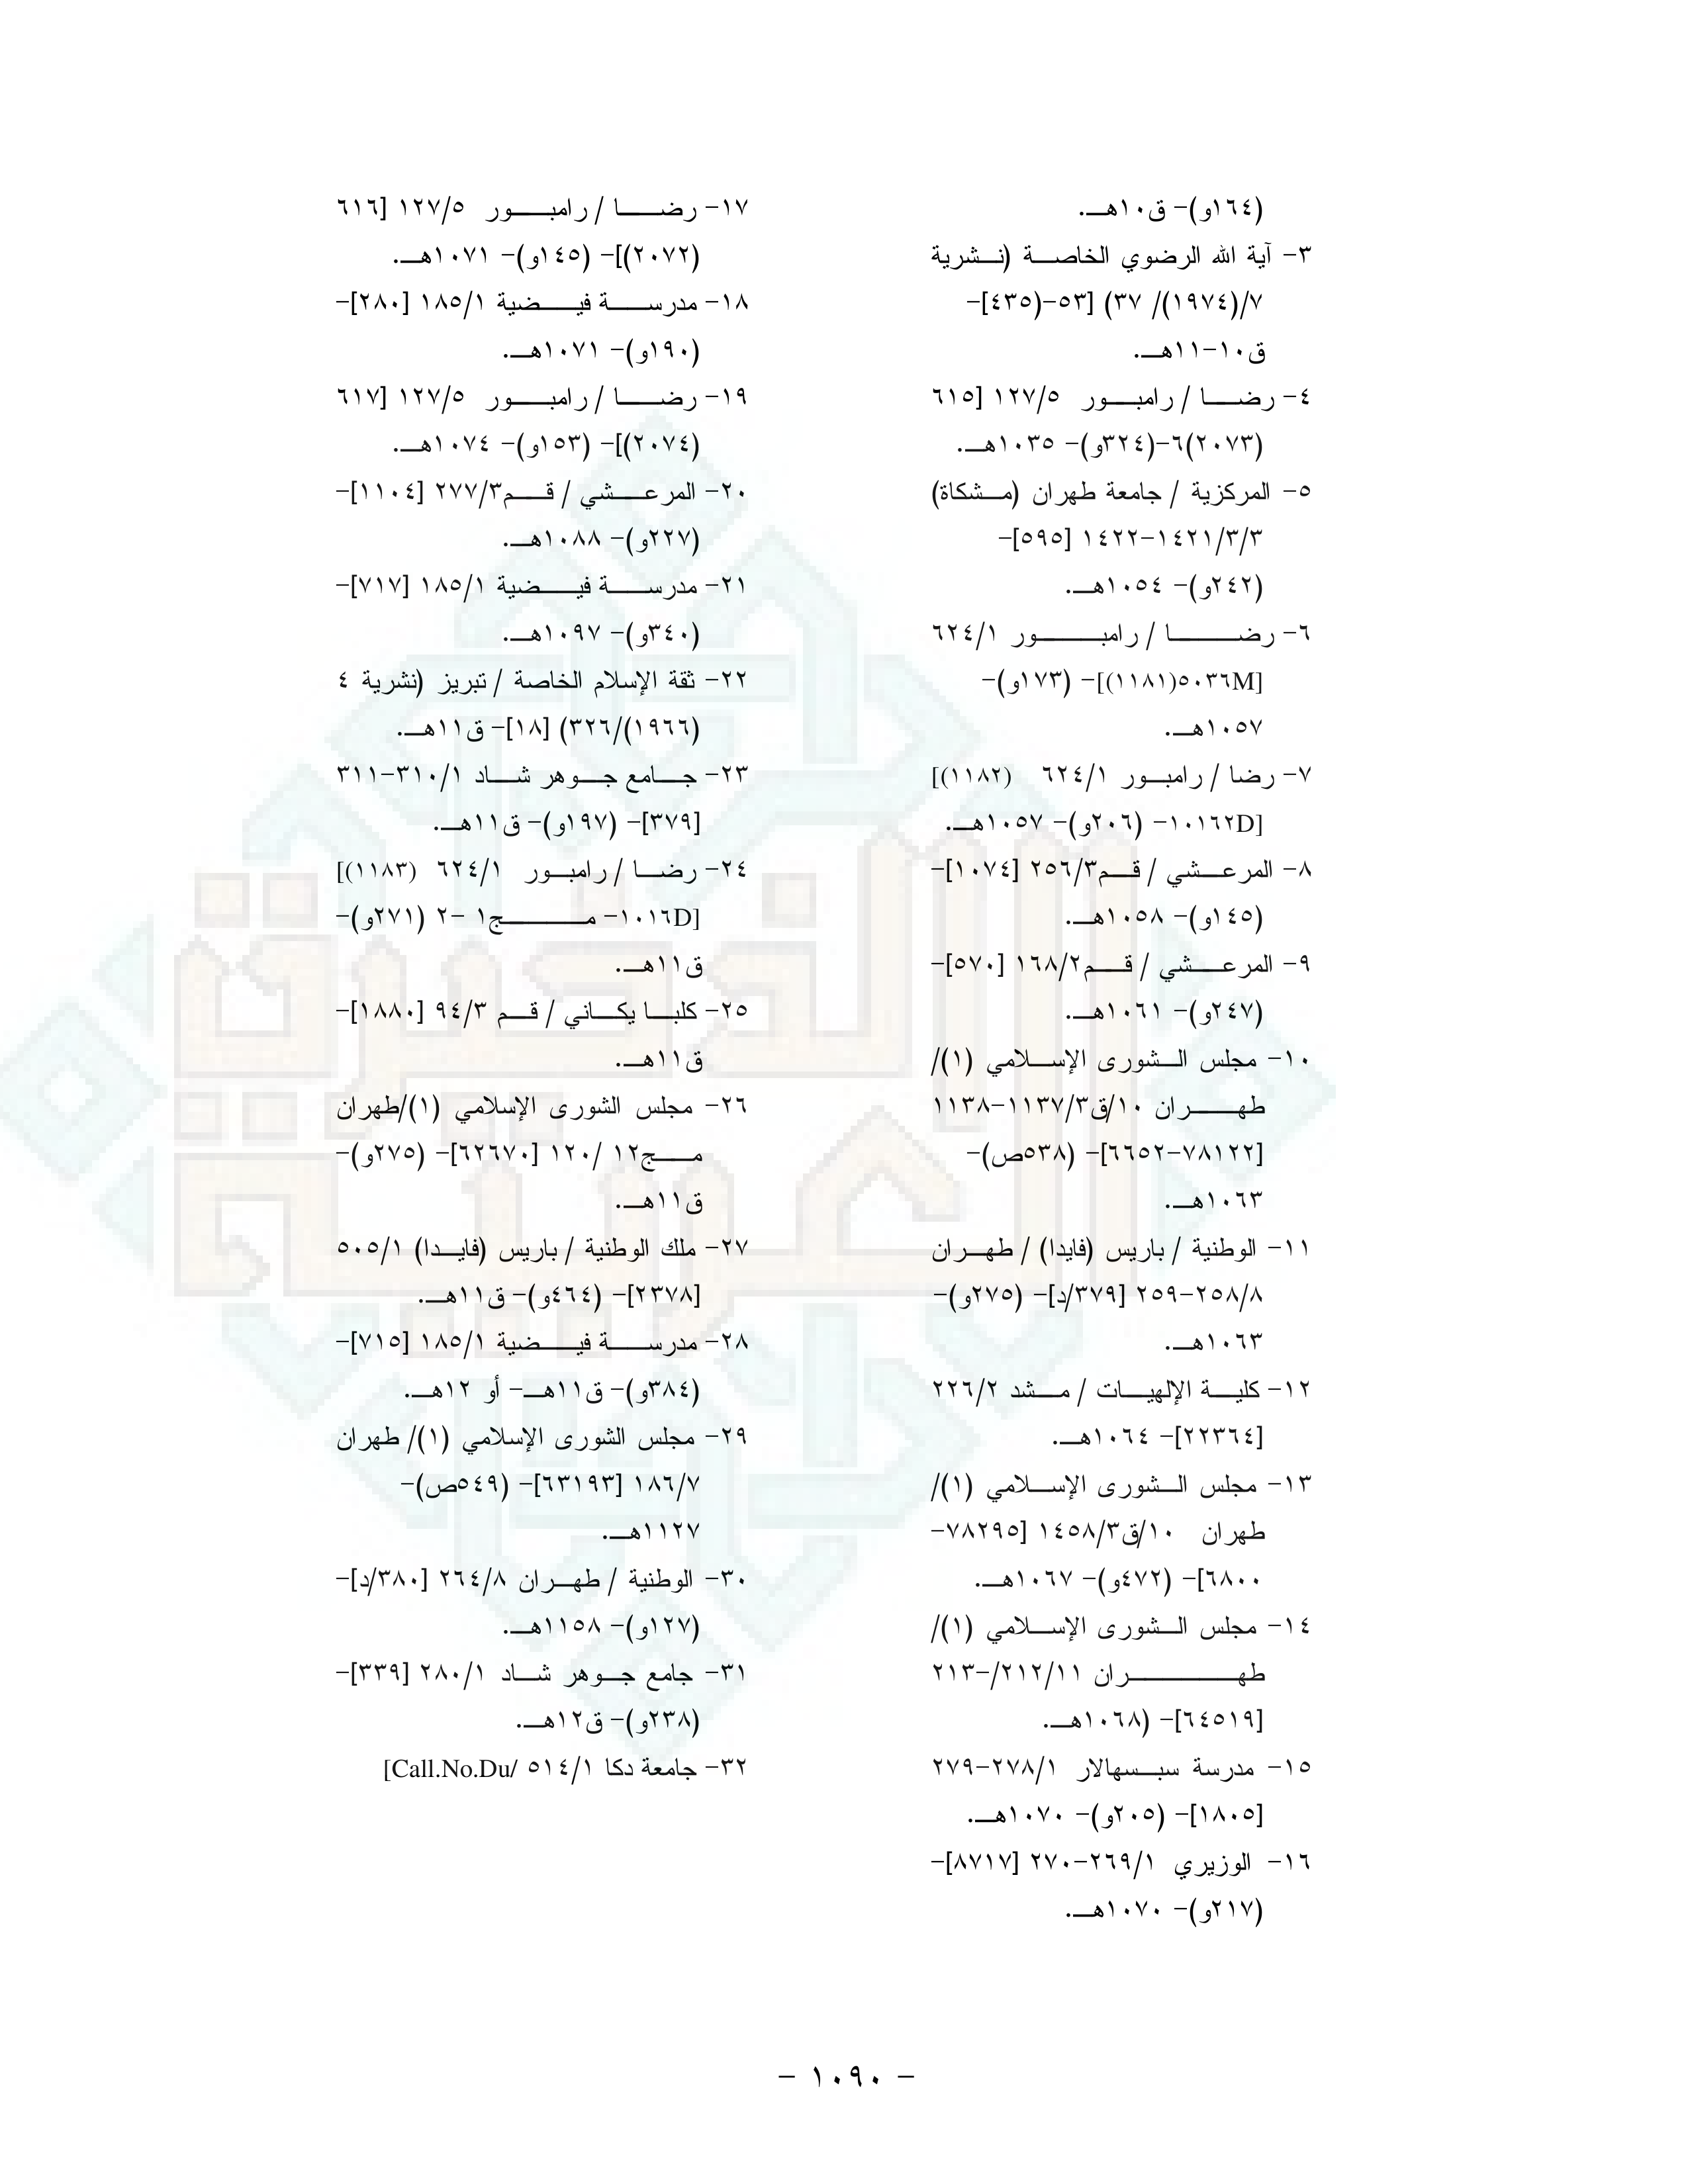 (١٦٤و)- ق١٠هـ.
٣- آية الله الرضوي الخاصة (نشرية
٧/(١٩٧٤)/ ٣٧) [٥٣-(٤٣٥]-
ق١٠-١١هـ.
٤- رضا / رامبور ١٢٧/٥ [٦١٥
(٢٠٧٣)٦-(٣٢٤و)- ١٠٣٥هـ.
٥- المركزية / جامعة طهران (مشكاة)
١٤٢١/٣/٣-١٤٢٢ [٥٩٥]-
(٢٤٢و)- ١٠٥٤هـ.
٦- رضا / رامبور ٦٢٤/١
[٥٠٣٦M(١١٨١)]- (١٧٣و)-
١٠٥٧هـ.
٧- رضا / رامبور ٦٢٤/١ (١١٨٢)]
[١٠١٦٢D- (٢٠٦و)- ١٠٥٧هـ.
٨- المرعشي / قم٢٥٦/٣ [١٠٧٤]-
(١٤٥و)- ١٠٥٨هـ.
٩- المرعشي / قم١٦٨/٢ [٥٧٠]-
(٢٤٧و)- ١٠٦١هـ.
١٠- مجلس الشورى الإسلامي (١)/
طهران ١٠/ق١١٣٧/٣-١١٣٨
[٧٨١٢٢-٦٦٥٢]- (٥٣٨ص)-
١٠٦٣هـ.
١١- الوطنية / باريس (فايدا) / طهران
٢٥٨/٨-٢٥٩ [٣٧٩/د]- (٢٧٥و)-
١٠٦٣هـ.
١٢- كلية الإلهيات / مشد ٢٢٦/٢
[٢٢٣٦٤]- ١٠٦٤هـ.
١٣- مجلس الشورى الإسلامي (١)/
طهران ١٠/ق١٤٥٨/٣ [٧٨٢٩٥-
٦٨٠٠]- (٤٧٢و)- ١٠٦٧هـ.
١٤- مجلس الشورى الإسلامي (١)/
طهران ٢١٢/١١/-٢١٣
[٦٤٥١٩]- (١٠٦٨هـ.
١٥- مدرسة سبسهالار ٢٧٨/١-٢٧٩
[١٨٠٥]- (٢٠٥و)- ١٠٧٠هـ.
١٦- الوزيري ٢٦٩/١-٢٧٠ [٨٧١٧]-
(٢١٧و)- ١٠٧٠هـ.
١٧- رضا / رامبور ١٢٧/٥ [٦١٦
(٢٠٧٢)]- (١٤٥و)- ١٠٧١هـ.
١٨- مدرسة فيضية ١٨٥/١ [٢٨٠]-
(١٩٠و)- ١٠٧١هـ.
١٩- رضا / رامبور ١٢٧/٥ [٦١٧
(٢٠٧٤)]- (١٥٣و)- ١٠٧٤هـ.
٢٠- المرعشي / قم٢٧٧/٣ [١١٠٤]-
(٢٢٧و)- ١٠٨٨هـ.
٢١- مدرسة فيضية ١٨٥/١ [٧١٧]-
(٣٤٠و)- ١٠٩٧هـ.
٢٢- ثقة الإسلام الخاصة / تبريز (نشرية ٤
(١٩٦٦)/٣٢٦) [١٨]- ق١١هـ.
٢٣- جامع جوهر شاد ٣١٠/١-٣١١
[٣٧٩]- (١٩٧و)- ق١١هـ.
٢٤- رضا / رامبور ٦٢٤/١ (١١٨٣)]
[١٠١٦D- مج١ -٢ (٢٧١و)-
ق١١هـ.
٢٥- كلبا يكاني / قم ٩٤/٣ [١٨٨٠]-
ق١١هـ.
٢٦- مجلس الشورى الإسلامي (١)/طهران
مج١٢ /١٢٠ [٦٢٦٧٠]- (٢٧٥و)-
ق١١هـ.
٢٧- ملك الوطنية / باريس (فايدا) ٥٠٥/١
[٢٣٧٨]- (٤٦٤و)- ق١١هـ.
٢٨- مدرسة فيضية ١٨٥/١ [٧١٥]-
(٣٨٤و)- ق١١هـ- أو ١٢هـ.
٢٩- مجلس الشورى الإسلامي (١)/ طهران
١٨٦/٧ [٦٣١٩٣]- (٥٤٩ص)-
١١٢٧هـ.
٣٠- الوطنية / طهران ٢٦٤/٨ [٣٨٠/د]-
(١٢٧و)- ١١٥٨هـ.
٣١- جامع جوهر شاد ٢٨٠/١ [٣٣٩]-
(٢٣٨و)- ق١٢هـ.
٣٢- جامعة دكا ٥١٤/١ /Call.No.Du]
- ١٠٩٠ -